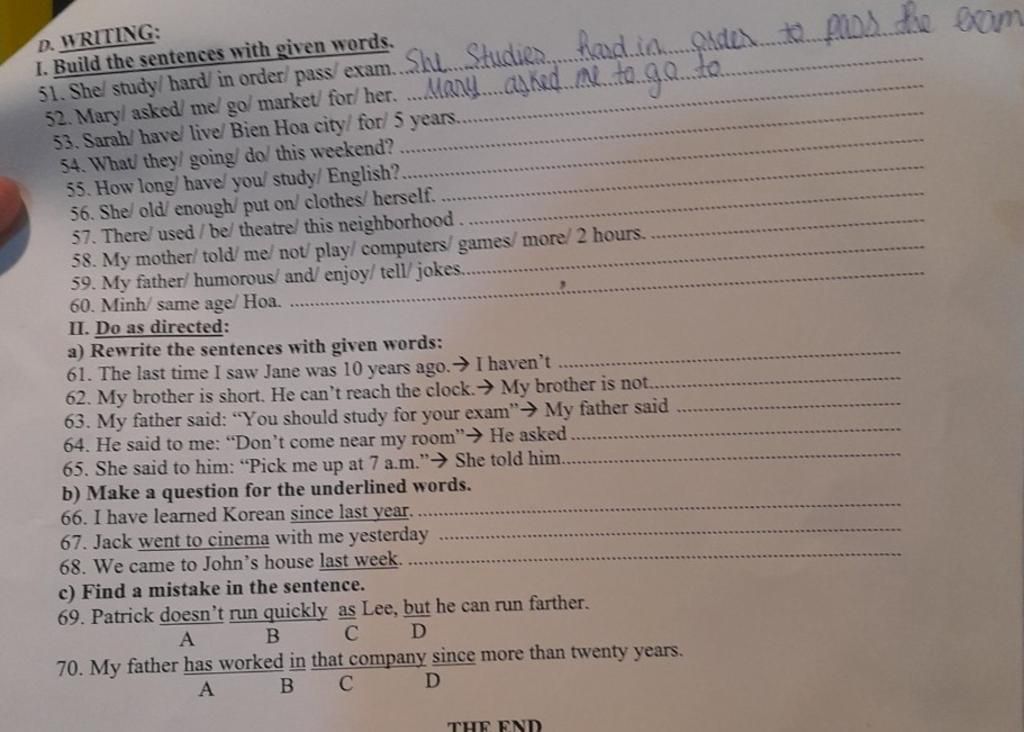 D. WRITING:
I. Build the sentences with given words.
51. She/ study/ hard/ in order/ pass/ exam. She Studies hard in order to pass the exam
52. Mary/ asked/ me/ go/ market/ for/ her. Mary asked me to go to
53. Sarah/ have/ live/ Bien Hoa city/ for/ 5 years.
54. What/ they/ going/ do/ this weekend?
55. How long/ have/ you/ study/ English?
56. She/ old/ enough/ put on/ clothes/ herself.
57. There/ used / be/ theatre/ this neighborhood .
58. My mother/ told/ me/ not/ play/ computers/ games/ more/ 2 hours.
59. My father/ humorous/ and/ enjoy/ tell/ jokes.
60. Minh/ same age/ Hoa.
II. Do as directed:
a) Rewrite the sentences with given words:
61. The last time I saw Jane was 10 years ago.→ I haven't
62. My brother is short. He can't reach the clock.→ My brother is not
63. My father said: “You should study for your exam”→ My father said
64. He said to me: “Don't come near my room”→ He asked
65. She said to him: “Pick me up at 7 a.m.”→ She told him
b) Make a question for the underlined words.
66. I have learned Korean since last year.
67. Jack went to cinema with me yesterday
68. We came to John's house last week.
c) Find a mistake in the sentence.
69. Patrick doesn't run quickly as Lee, but he can run farther.
A B C D
70. My father has worked in that company since more than twenty years.
A B C D
THE END